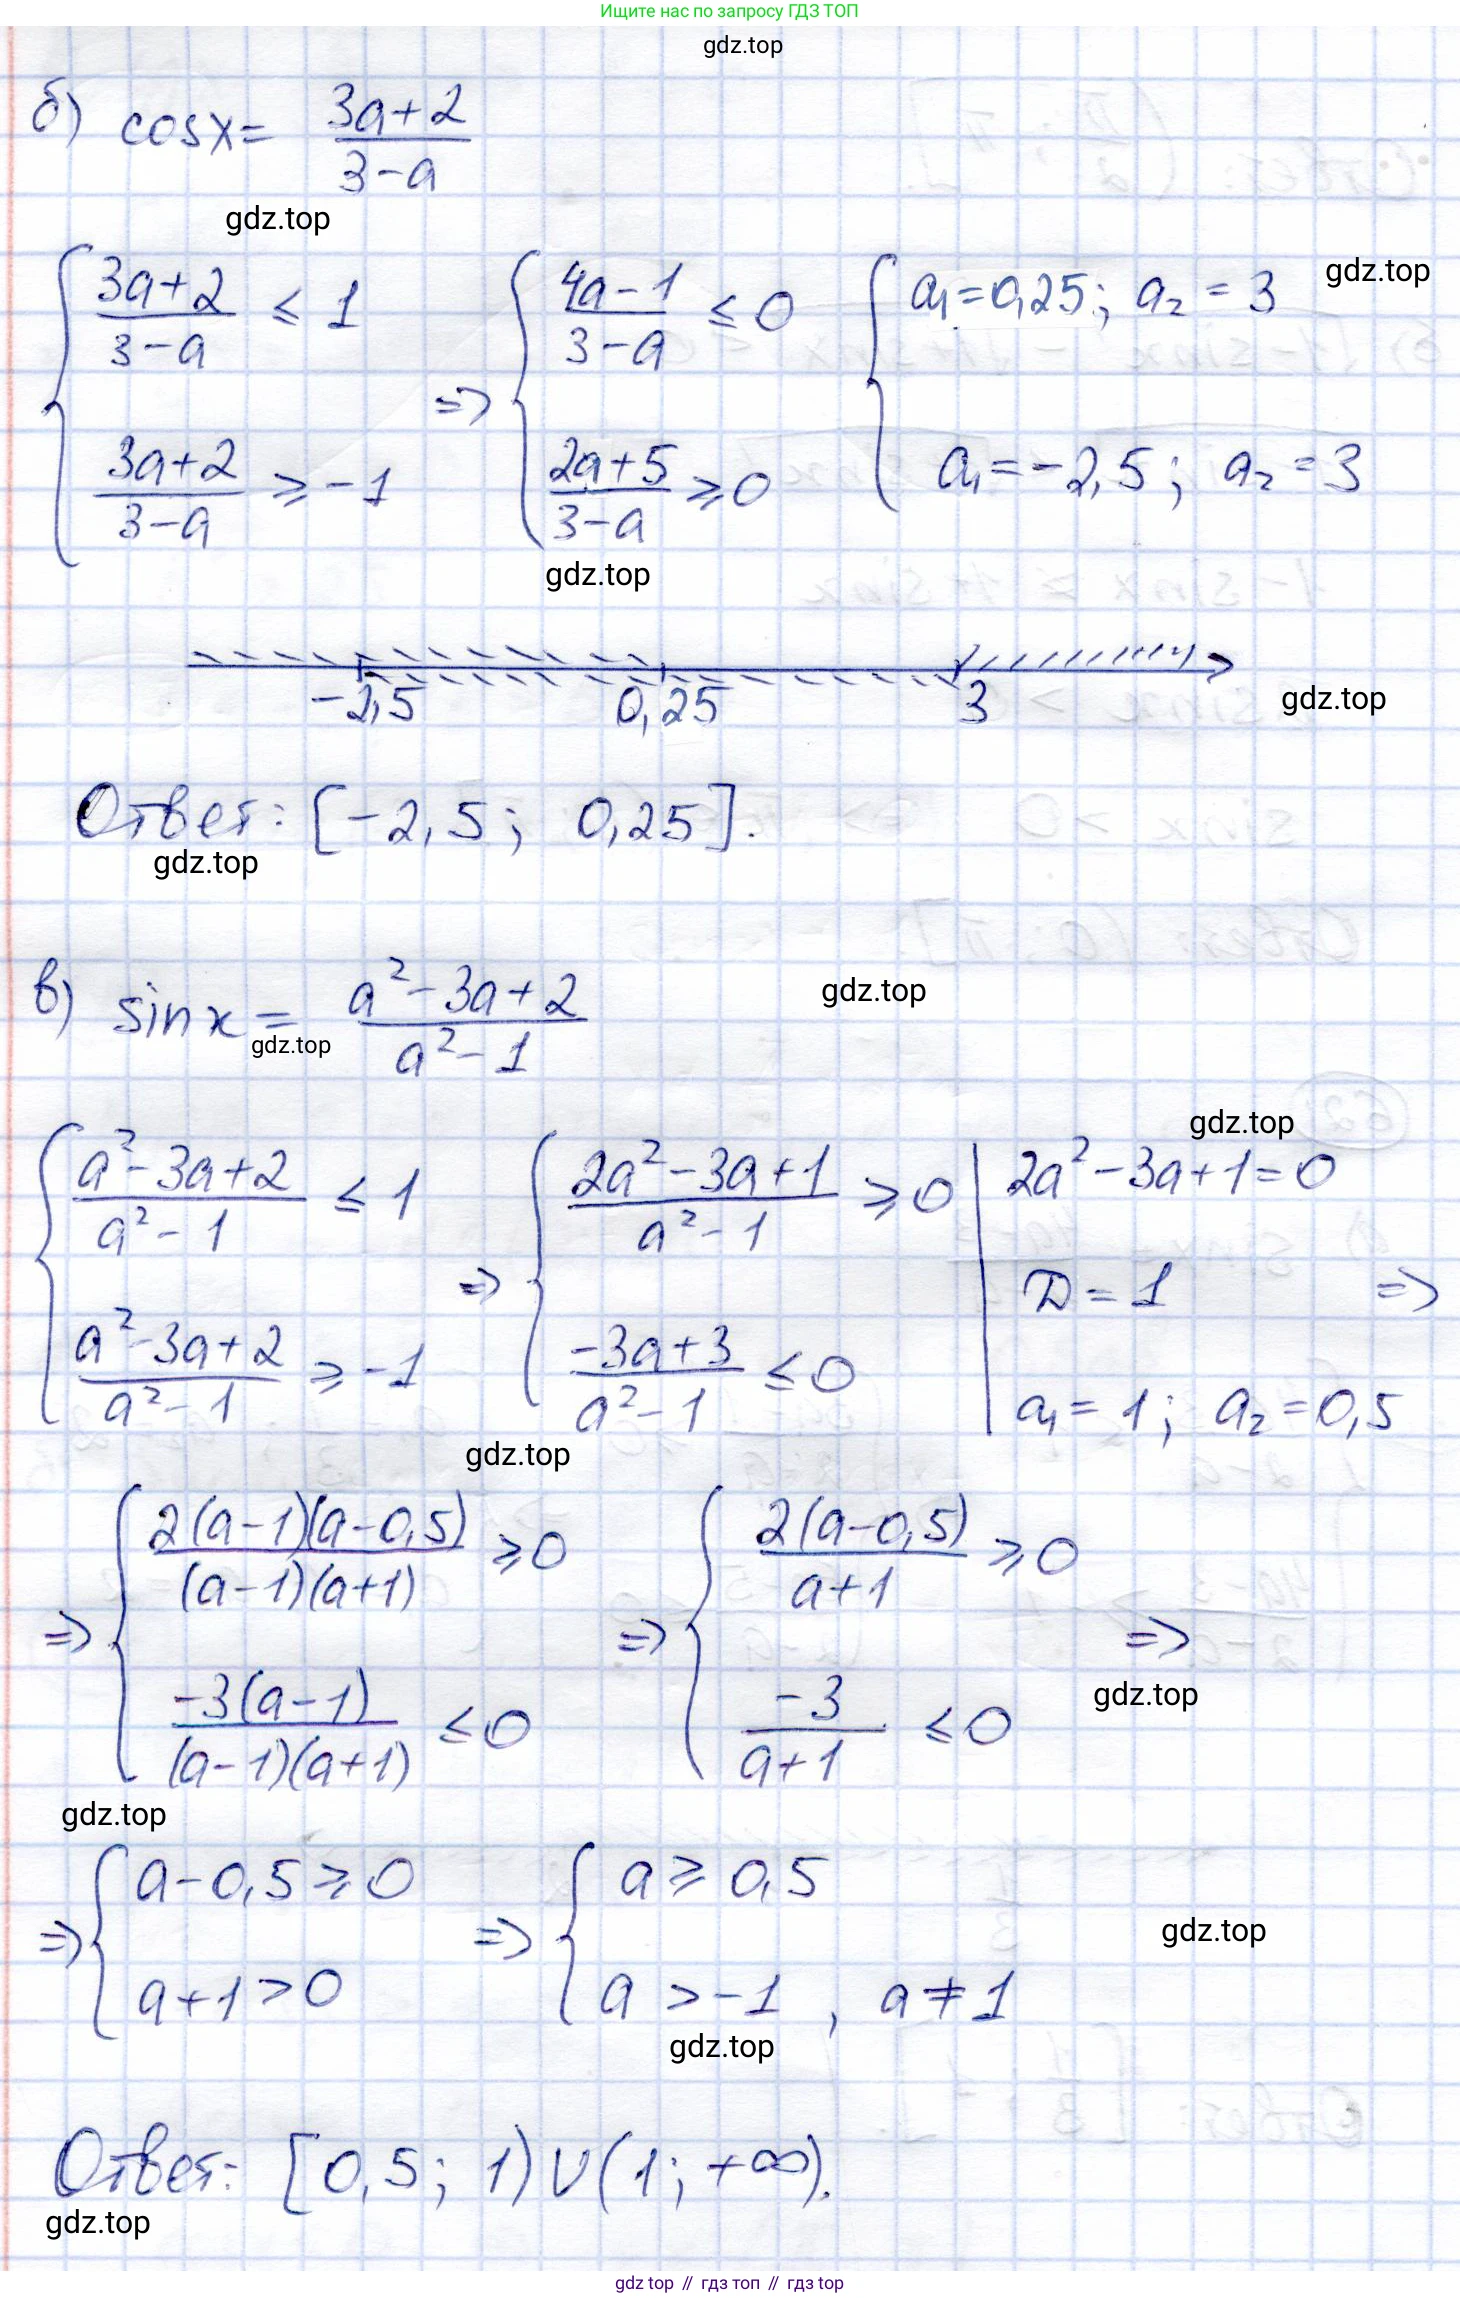 Ищите нас по запросу ГДЗ ТОП
gdz.top
б) cosx = (3a+2)/(3-a)
gdz.top
{ (3a+2)/(3-a) ≤ 1 ; (3a+2)/(3-a) ≥ -1 => { (4a-1)/(3-a) ≤ 0 ; (2a+5)/(3-a) ≥ 0 { a₁=0,25; a₂=3 ; a₁=-2,5; a₂=3
gdz.top
gdz.top
-2,5 0,25 3
gdz.top
Ответ: [-2,5; 0,25].
gdz.top
в) sinx = (a²-3a+2)/(a²-1)
gdz.top
gdz.top
gdz.top
{ (a²-3a+2)/(a²-1) ≤ 1 ; (a²-3a+2)/(a²-1) ≥ -1 => { (2a²-3a+1)/(a²-1) ≥ 0 ; (-3a+3)/(a²-1) ≤ 0 | 2a²-3a+1=0
D=1 =>
a₁=1; a₂=0,5
gdz.top
=> { 2(a-1)(a-0,5)/(a-1)(a+1) ≥ 0 ; -3(a-1)/(a-1)(a+1) ≤ 0 => { 2(a-0,5)/(a+1) ≥ 0 ; -3/(a+1) ≤ 0 =>
gdz.top
gdz.top
=> { a-0,5 ≥ 0 ; a+1 > 0 => { a ≥ 0,5 ; a > -1, a ≠ 1
gdz.top
gdz.top
Ответ: [0,5; 1)∪(1; +∞).
gdz.top
gdz top // гдз топ // гдз top